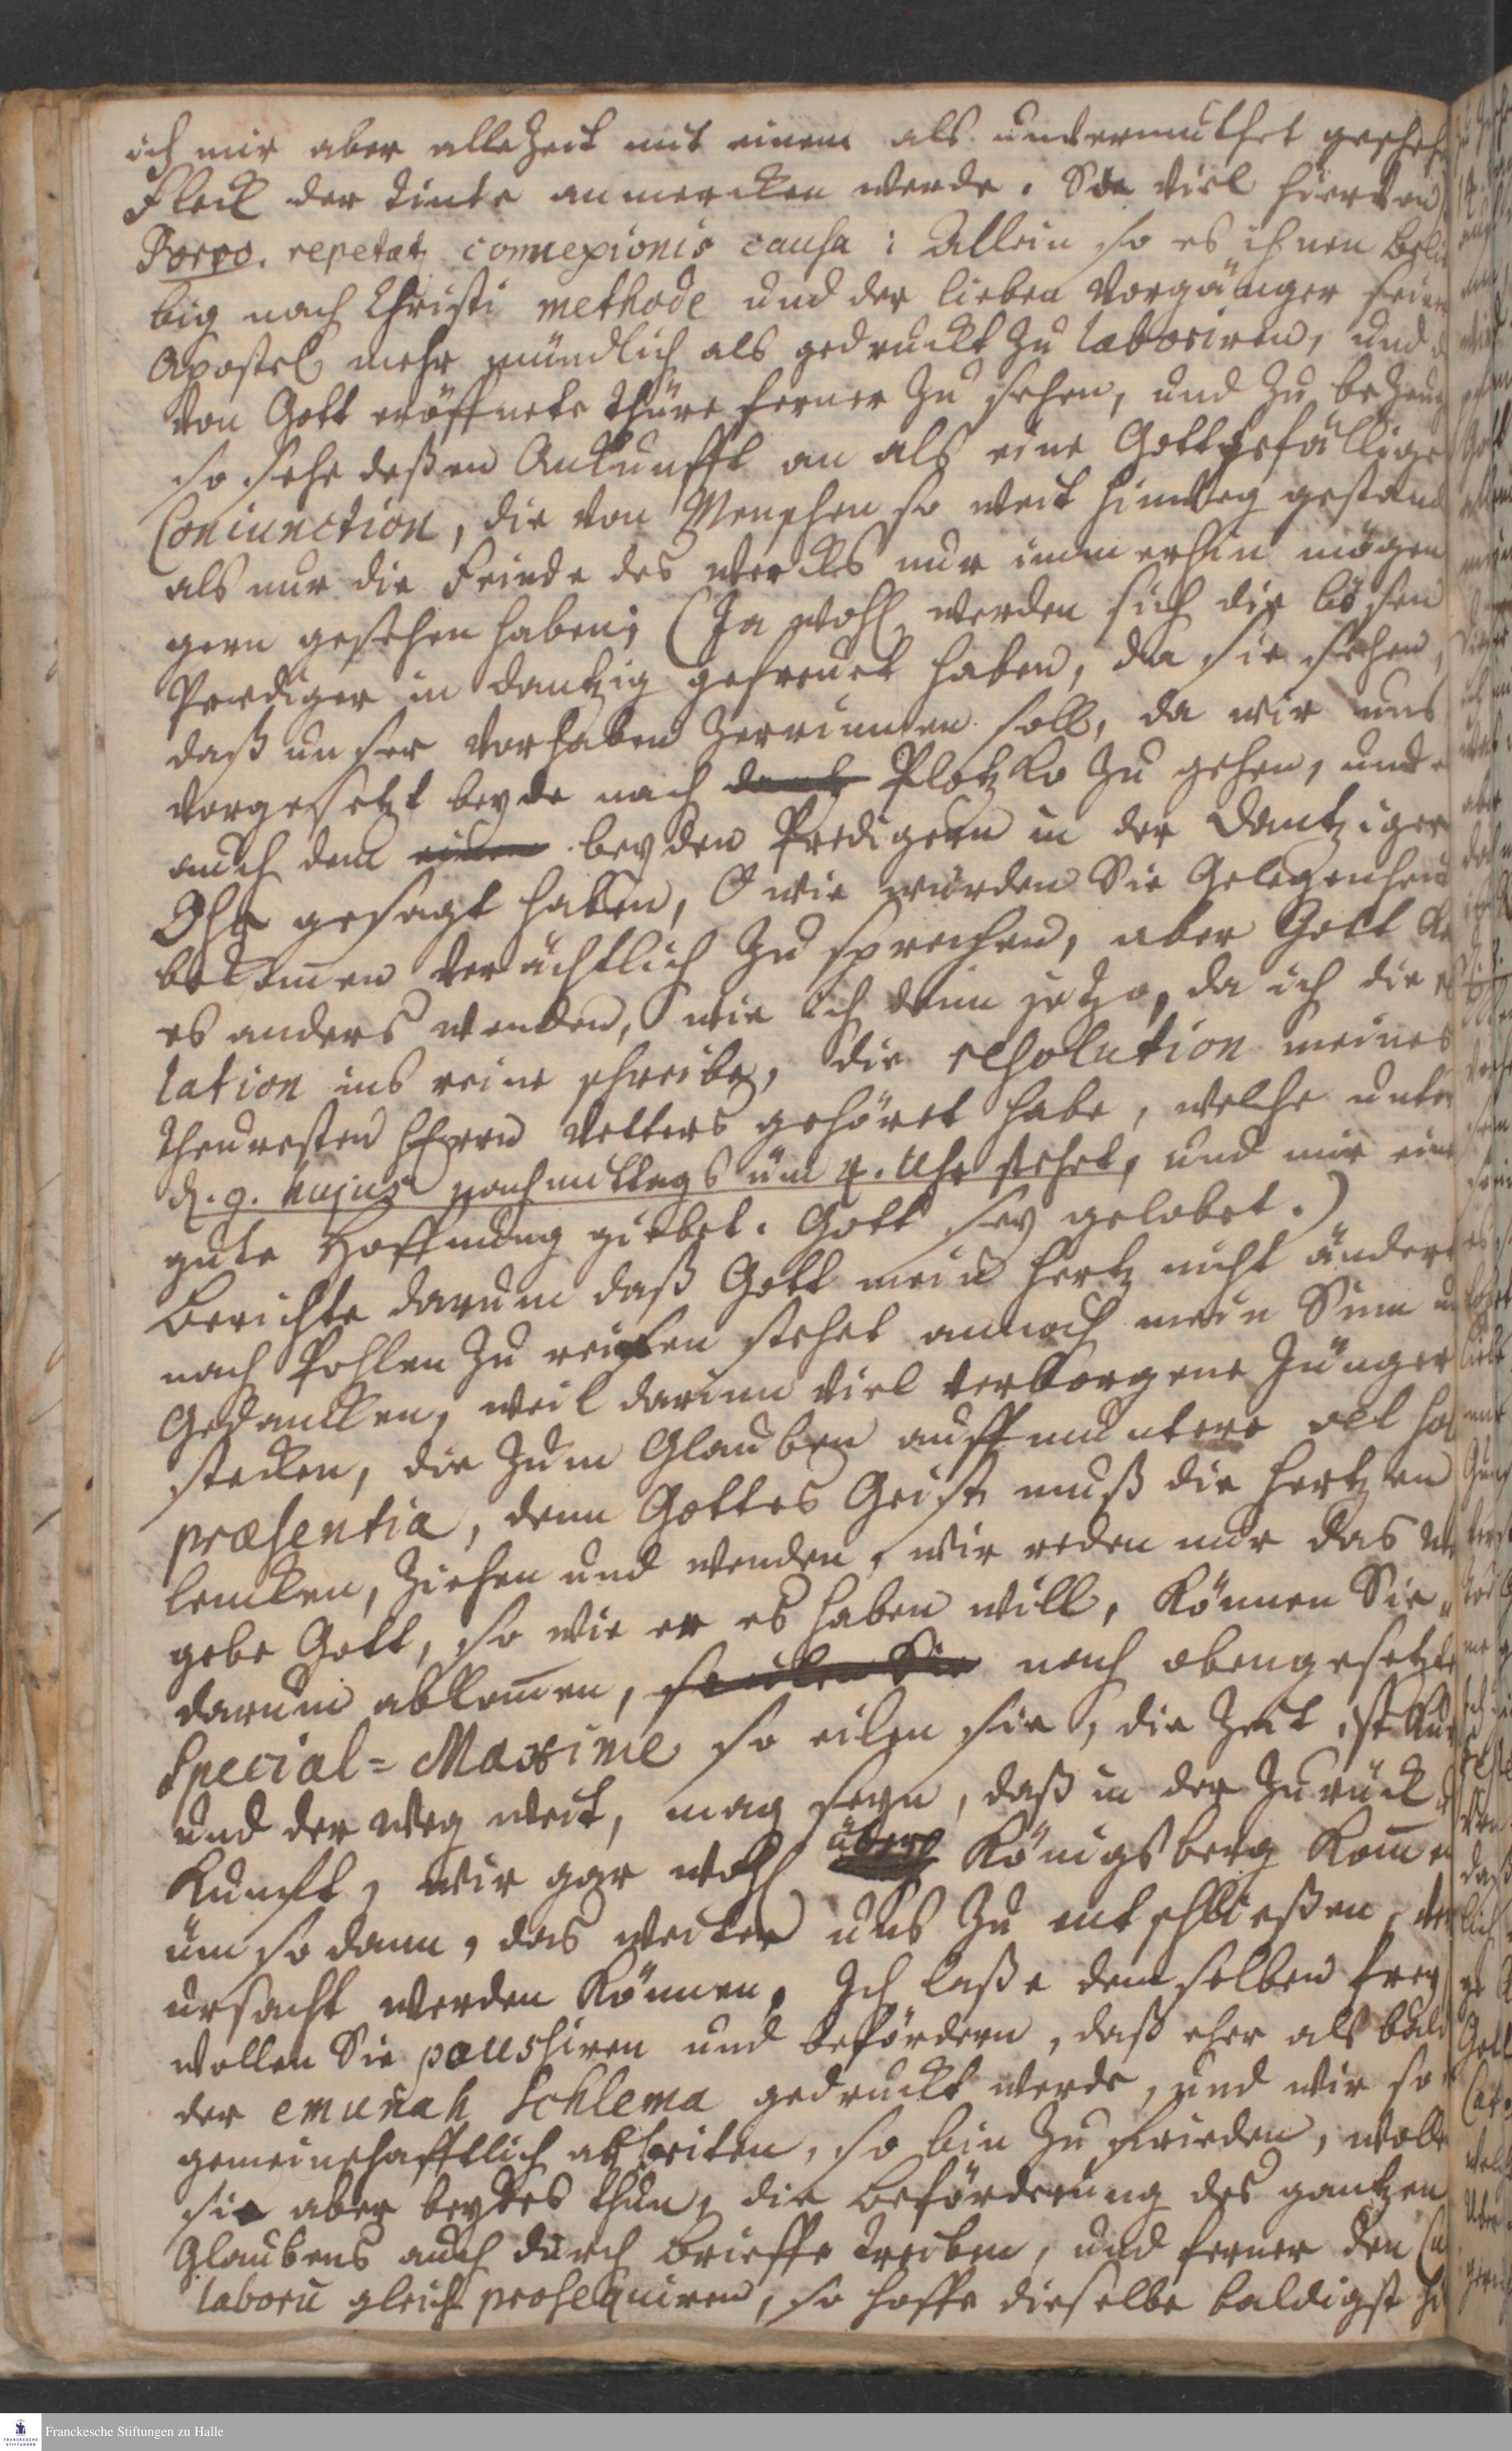 ich mir aber allezeit mit einem als undermuthet gescheh
Fleck der Tinte anmercken werde. So viel hiervon
Porro. repetat connexionis causa: Allein so es ihnen belie
big nach Christi methode und der lieben Vorgänger seiner
Apostel mehr mündlich als gedruckt zu laboriren, und d
von Gott eröffnete Thüre ferner zu sehen, und zu bezeug
so sehe deßen Ankunfft an als eine Gottgefällige
Coniunction, die von Menschen so weit hinweg gestand
als nur die Feinde des Wercks nur immerhin mögen
gern gesehen haben; (Ja wohl werden sich die bösen
Prediger in Dantzig gefreuet haben, da sie sehen,
daß unser Vorhaben zerrinnen soll, da wir uns
vorgesetzt beyde nach Plotzko zu gehen, und
auch dem beyden Predigern in der Dantziger
Ohr gesagt haben, O wie würden Sie Gelegenheit
bekom̄en verächtlich zu sprechen, aber Gott ka
es anders wenden, wie ich denn jetzo, da ich die re
lation ins reine schreibe, die resolution meines
theuresten Herrn Vetters gehöret habe, welche unter
d. 9. hujus nachmittags um 4. Uhr stehet, und mir eine
gute Hoffnung giebet. Gott sey gelobet.)
Berichte darum daß Gott mein Hertz nicht ändert
nach Pohlen zu reisen stehet annoch mein Sinn un
Gedancken, weil darinn viel verborgene Jünger
stecken, die zum Glauben auffmuntere vel sola
præsentia, denn Gottes Geist muß die Hertzen
lencken, ziehen und wenden, wir reden nur das We
gebe Gott, so wie er es haben will, Können Sie
darum abkom̄en, so eilen Sie nach obengesetzte
Special-Maxime so eilen sie, die Zeit ist kur
und der Weg weit, mag seyn, daß in der Zurück
kunfft, wir gar wohl über Königsberg kom̄en
um so dann, das weiter uns zu entschließen, ver
ursacht werden können. Ich laße demselben frey
wollen Sie poushiren und befördern, daß eher als bald
der emunah Schlema gedruckt werde, und wir so
gemeinschafftlich arbeiten, so bin zu frieden, wolle
sie aber beydes thun, die Beförderung des gantzen
Glaubens auch durch Brieffe treiben, und ferner den Cu
laborū gleich prosequiren, so hoffe dieselbe baldigst hi
Franckesche Stiftungen zu Halle